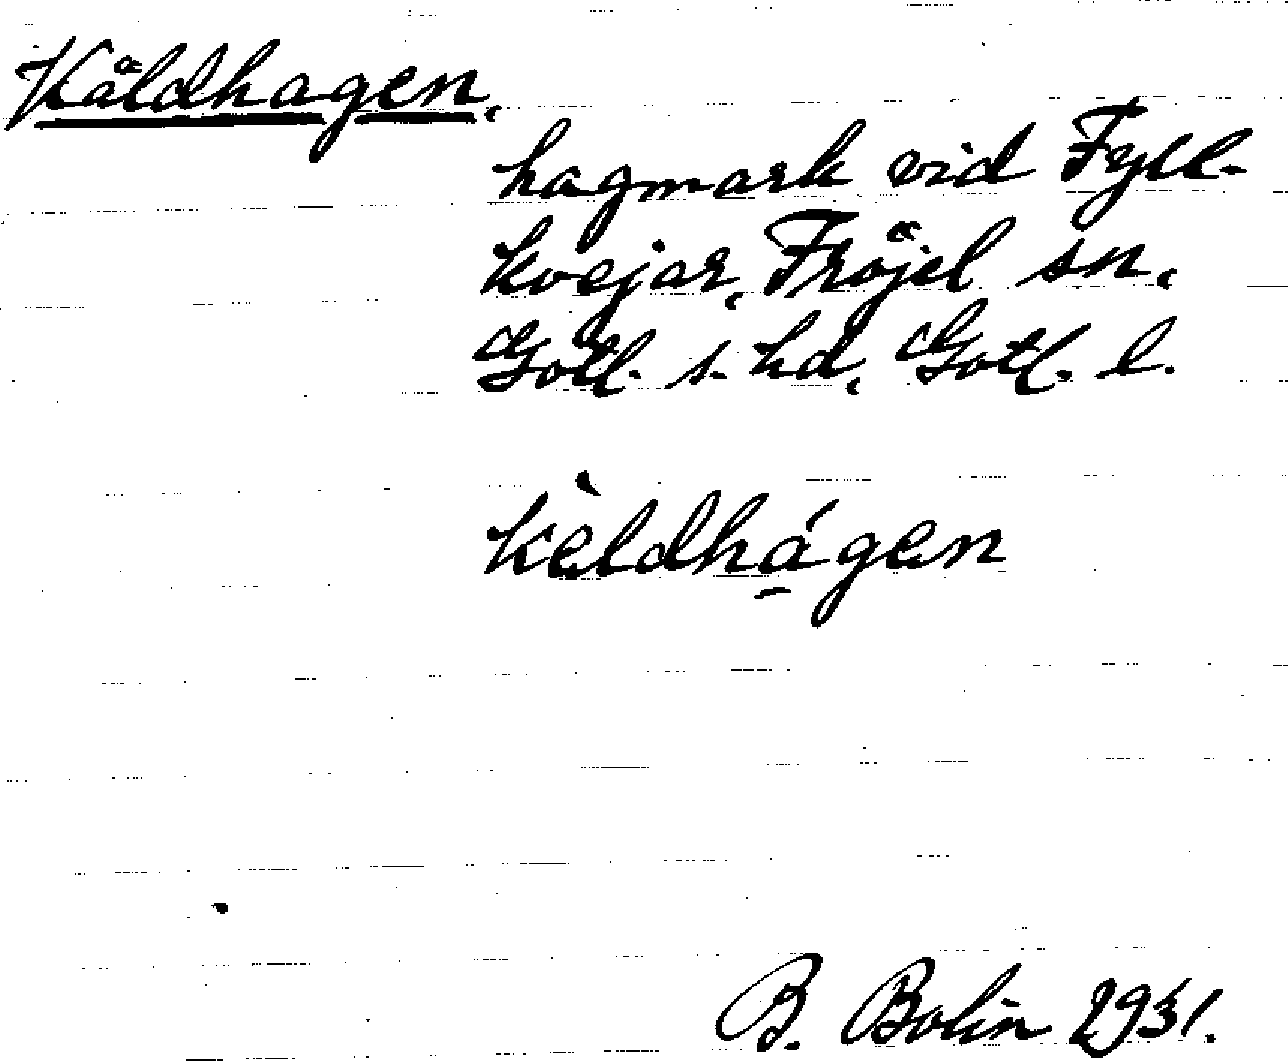 Kåldhagen,
hagmark vid Fyll-
kvejar, Fröjel sn,
Gotl. s. hd, Gotl. l.
kèldhá̱gen
B. Bolin 1931.